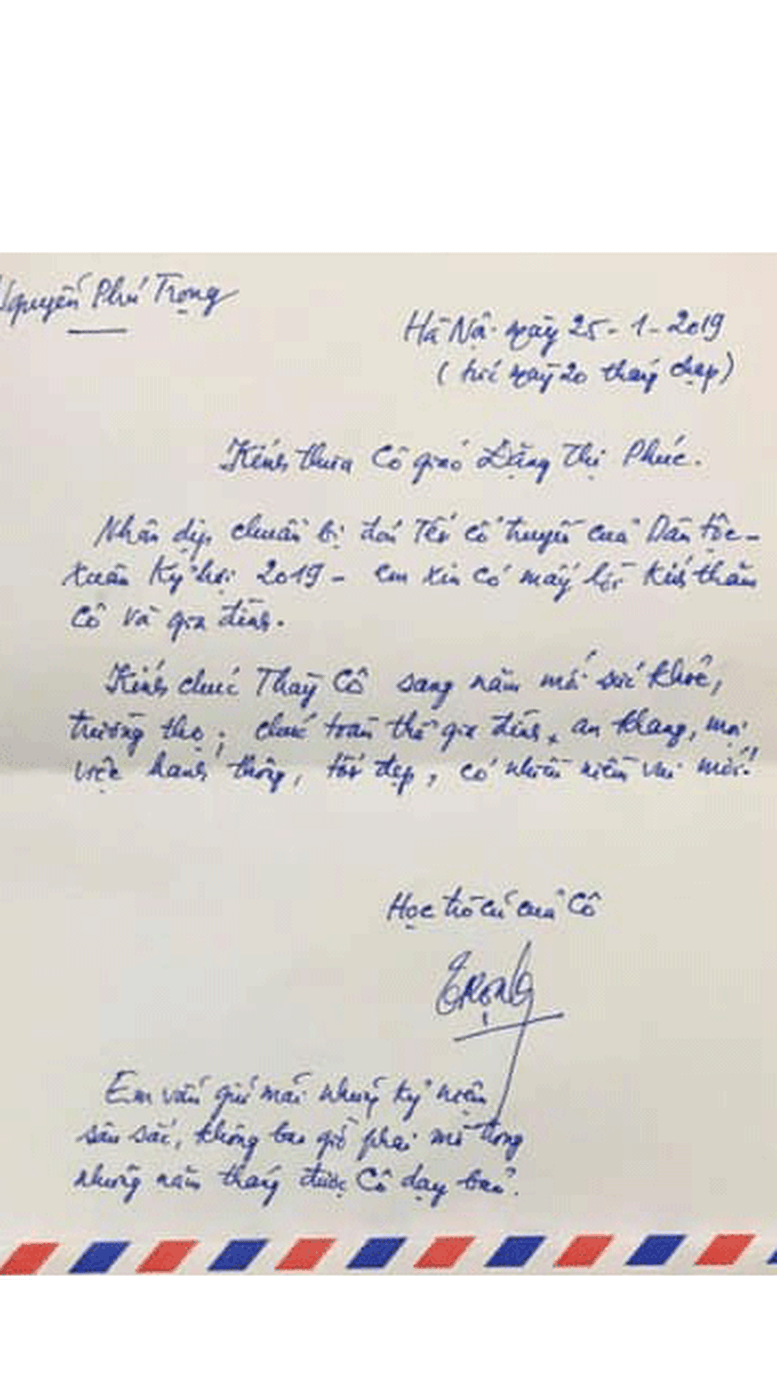 Nguyễn Phú Trọng
Hà Nội ngày 25-1-2019
(tức ngày 20 tháng chạp)
Kính thưa Cô giáo Đặng Thị Phúc.
Nhân dịp chuẩn bị đón Tết cổ truyền của Dân tộc -
Xuân Kỷ hợi 2019 - em xin có mấy lời kính thăm
Cô và gia đình.
Kính chúc Thầy Cô sang năm mới sức khoẻ,
trường thọ; chúc toàn thể gia đình, an khang, mọi
việc hanh thông, tốt đẹp, có nhiều niềm vui mới!
Học trò cũ của Cô
Trọng
Em vẫn giữ mãi những kỷ niệm
sâu sắc, không bao giờ phai mờ trong
những năm tháng được Cô dạy bảo.